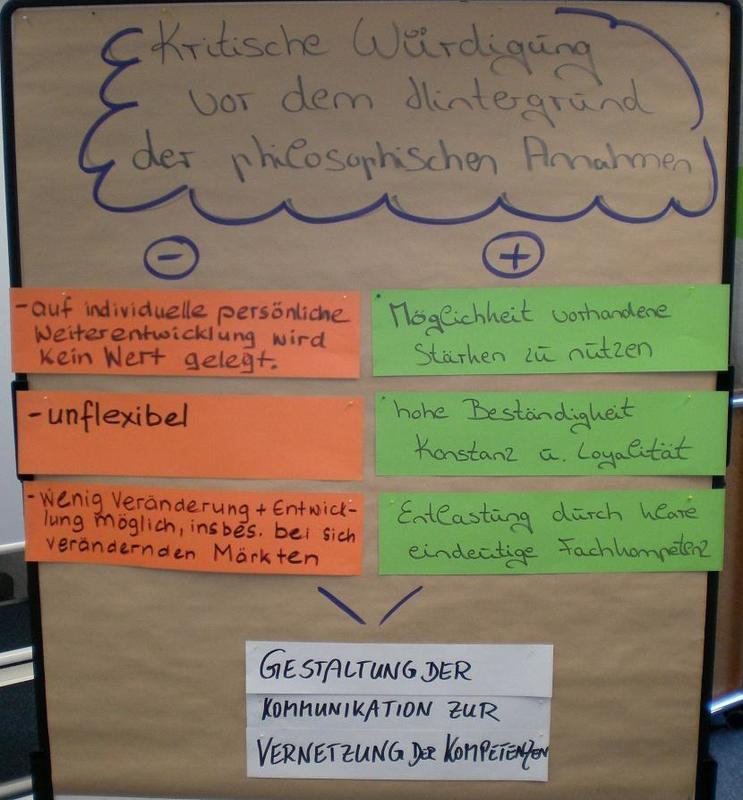 Kritische Würdigung
vor dem Hintergrund
der philosophischen Annahmen
-
+
- auf individuelle persönliche
Weiterentwicklung wird
kein Wert gelegt.
- unflexibel
- wenig Veränderung + Entwick-
lung möglich, insbes. bei sich
verändernden Märkten
Möglichkeit vorhandene
Stärken zu nutzen
hohe Beständigkeit
Konstanz u. Loyalität
Entlastung durch klare
eindeutige Fachkompetenz
GESTALTUNG DER
KOMMUNIKATION ZUR
VERNETZUNG DER KOMPETENZEN